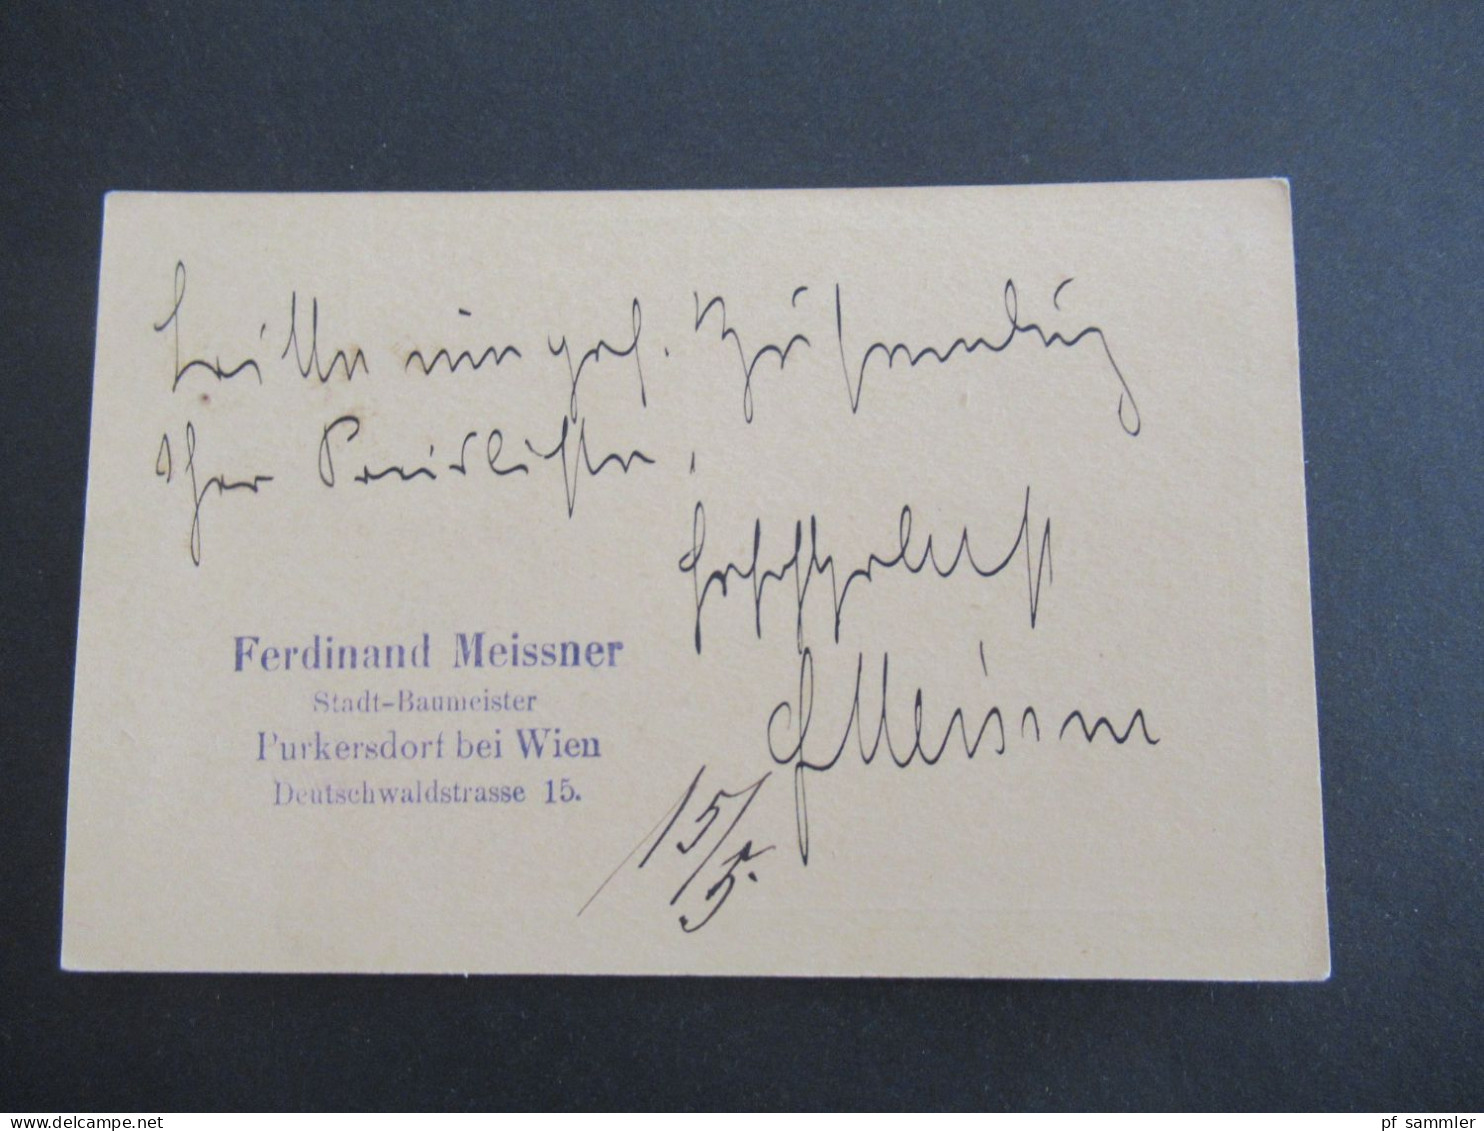 Bitte um gef. Zusendung
Ihrer Preisliste.
Hochachtungsvollst
F Meissner
15/5.
Ferdinand Meissner
Stadt-Baumeister
Purkersdorf bei Wien
Deutschwaldstrasse 15.
pf sammler